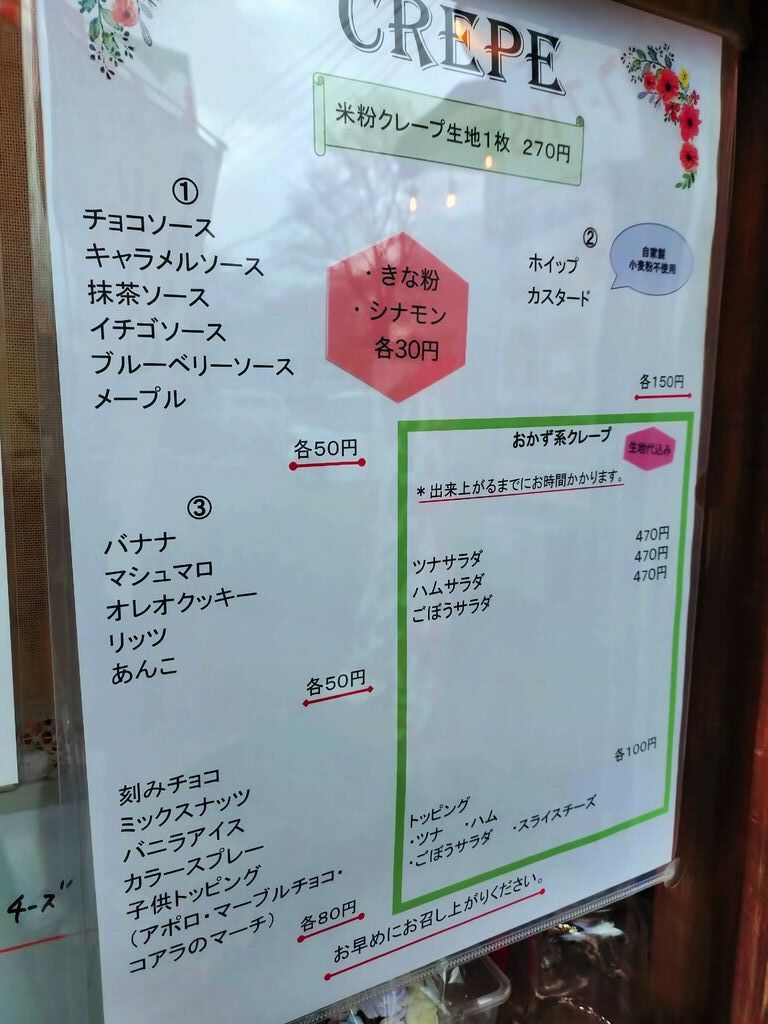 CREPE
米粉クレープ生地1枚 270円
①
チョコソース
キャラメルソース
抹茶ソース
イチゴソース
ブルーベリーソース
メープル
各50円
・きな粉
・シナモン
各30円
②
ホイップ
カスタード
自家製
小麦粉不使用
各150円
③
バナナ
マシュマロ
オレオクッキー
リッツ
あんこ
各50円
刻みチョコ
ミックスナッツ
バニラアイス
カラースプレー
子供トッピング
（アポロ・マーブルチョコ・
コアラのマーチ）
各80円
おかず系クレープ
生地代込み
＊出来上がるまでにお時間かかります。
ツナサラダ 470円
ハムサラダ 470円
ごぼうサラダ 470円
各100円
トッピング
・ツナ ・ハム
・ごぼうサラダ ・スライスチーズ
お早めにお召し上がりください。
チーズ